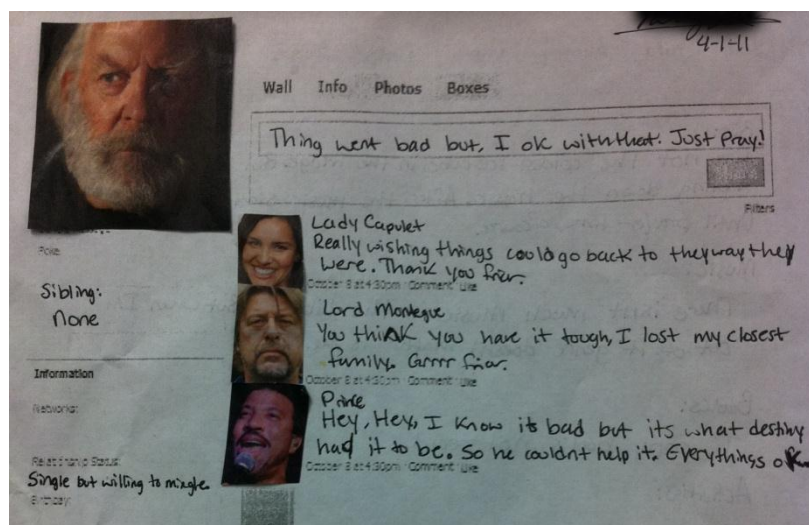 4-1-11
Wall Info Photos Boxes
Thing went bad but, I ok with that. Just Pray!
Filters
Lady Capulet
Really wishing things could go back to theyway they
were. Thank you friar.
October 8 at 4:30pm · Comment · Like
Poke
Sibling:
none
Lord Montegue
You think you have it tough, I lost my closest
family. Grrrr friar.
October 8 at 4:30pm · Comment · Like
Information
Networks:
Prince
Hey, Hey, I know its bad but its what destiny
had it to be. So he couldnt help it. Everythings ok
October 8 at 4:30pm · Comment · Like
Relationship Status:
Single but willing to mingle.
Birthday: